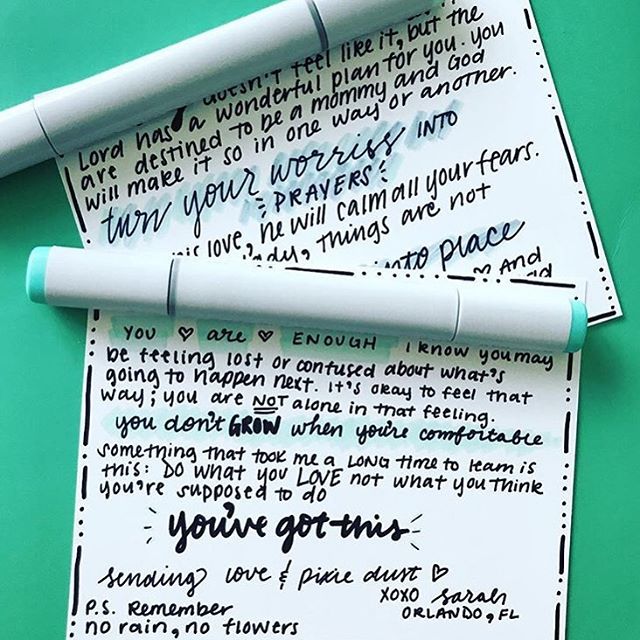 doesn't feel like it, but the
Lord has a wonderful plan for you. you
are destined to be a mommy and God
will make it so in one way or another.
turn your worriss INTO
PRAYERS
his love, he will calm all your fears.
things are not
into place
♡ And
YOU ♡ are ♡ ENOUGH I know you may
be feeling lost or confused about what's
going to happen next. it's okay to feel that
way; you are NOT alone in that feeling.
you don't GROW when you're comfortable
something that took me a LONG time to learn is
this: DO what you LOVE not what you think
you're supposed to do
you've got this
sending love & pixie dust ♡
XOXO sarah
ORLANDO, FL
P.S. Remember
no rain, no flowers